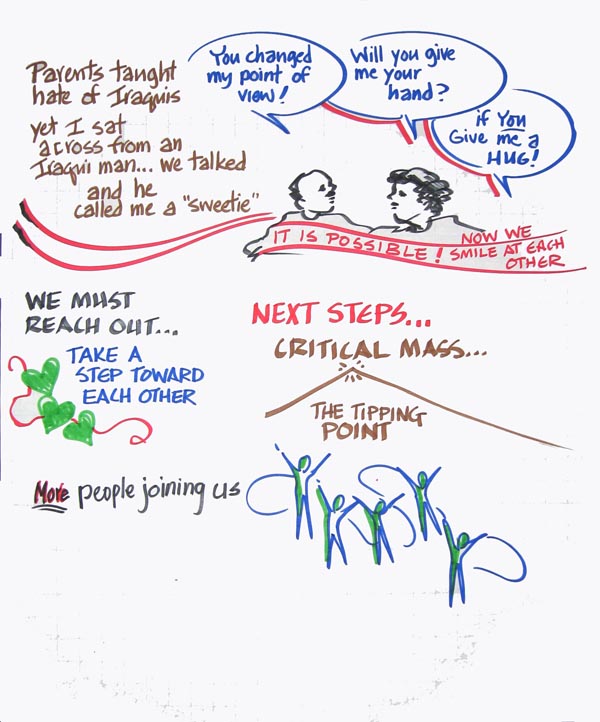 Parents taught
hate of Iraquis
yet I sat
across from an
Iraqui man... we talked
and he
called me a "sweetie"
You changed
my point of
view!
Will you give
me your
hand?
if You
Give me a
HUG!
IT IS POSSIBLE!
NOW WE
SMILE AT EACH
OTHER
WE MUST
REACH OUT...
TAKE A
STEP TOWARD
EACH OTHER
NEXT STEPS...
CRITICAL MASS...
THE TIPPING
POINT
More people joining us